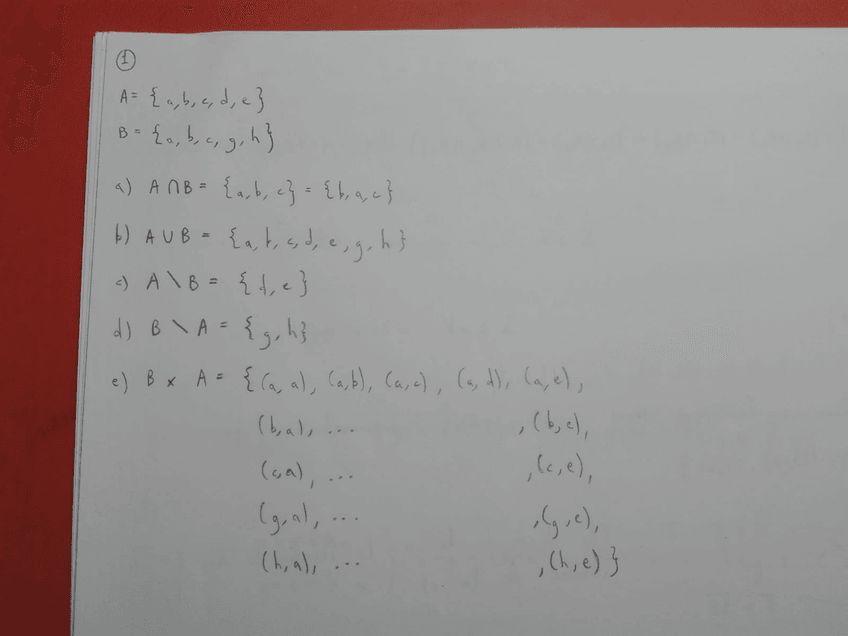 1
A = {a, b, c, d, e}
B = {a, b, c, g, h}
a) A ∩ B = {a, b, c} = {b, a, c}
b) A ∪ B = {a, b, c, d, e, g, h}
c) A \ B = {d, e}
d) B \ A = {g, h}
e) B × A = {(a, a), (a, b), (a, c), (a, d), (a, e),
(b, a), ... , (b, e),
(c, a), ... , (c, e),
(g, a), ... , (g, e),
(h, a), ... , (h, e)}